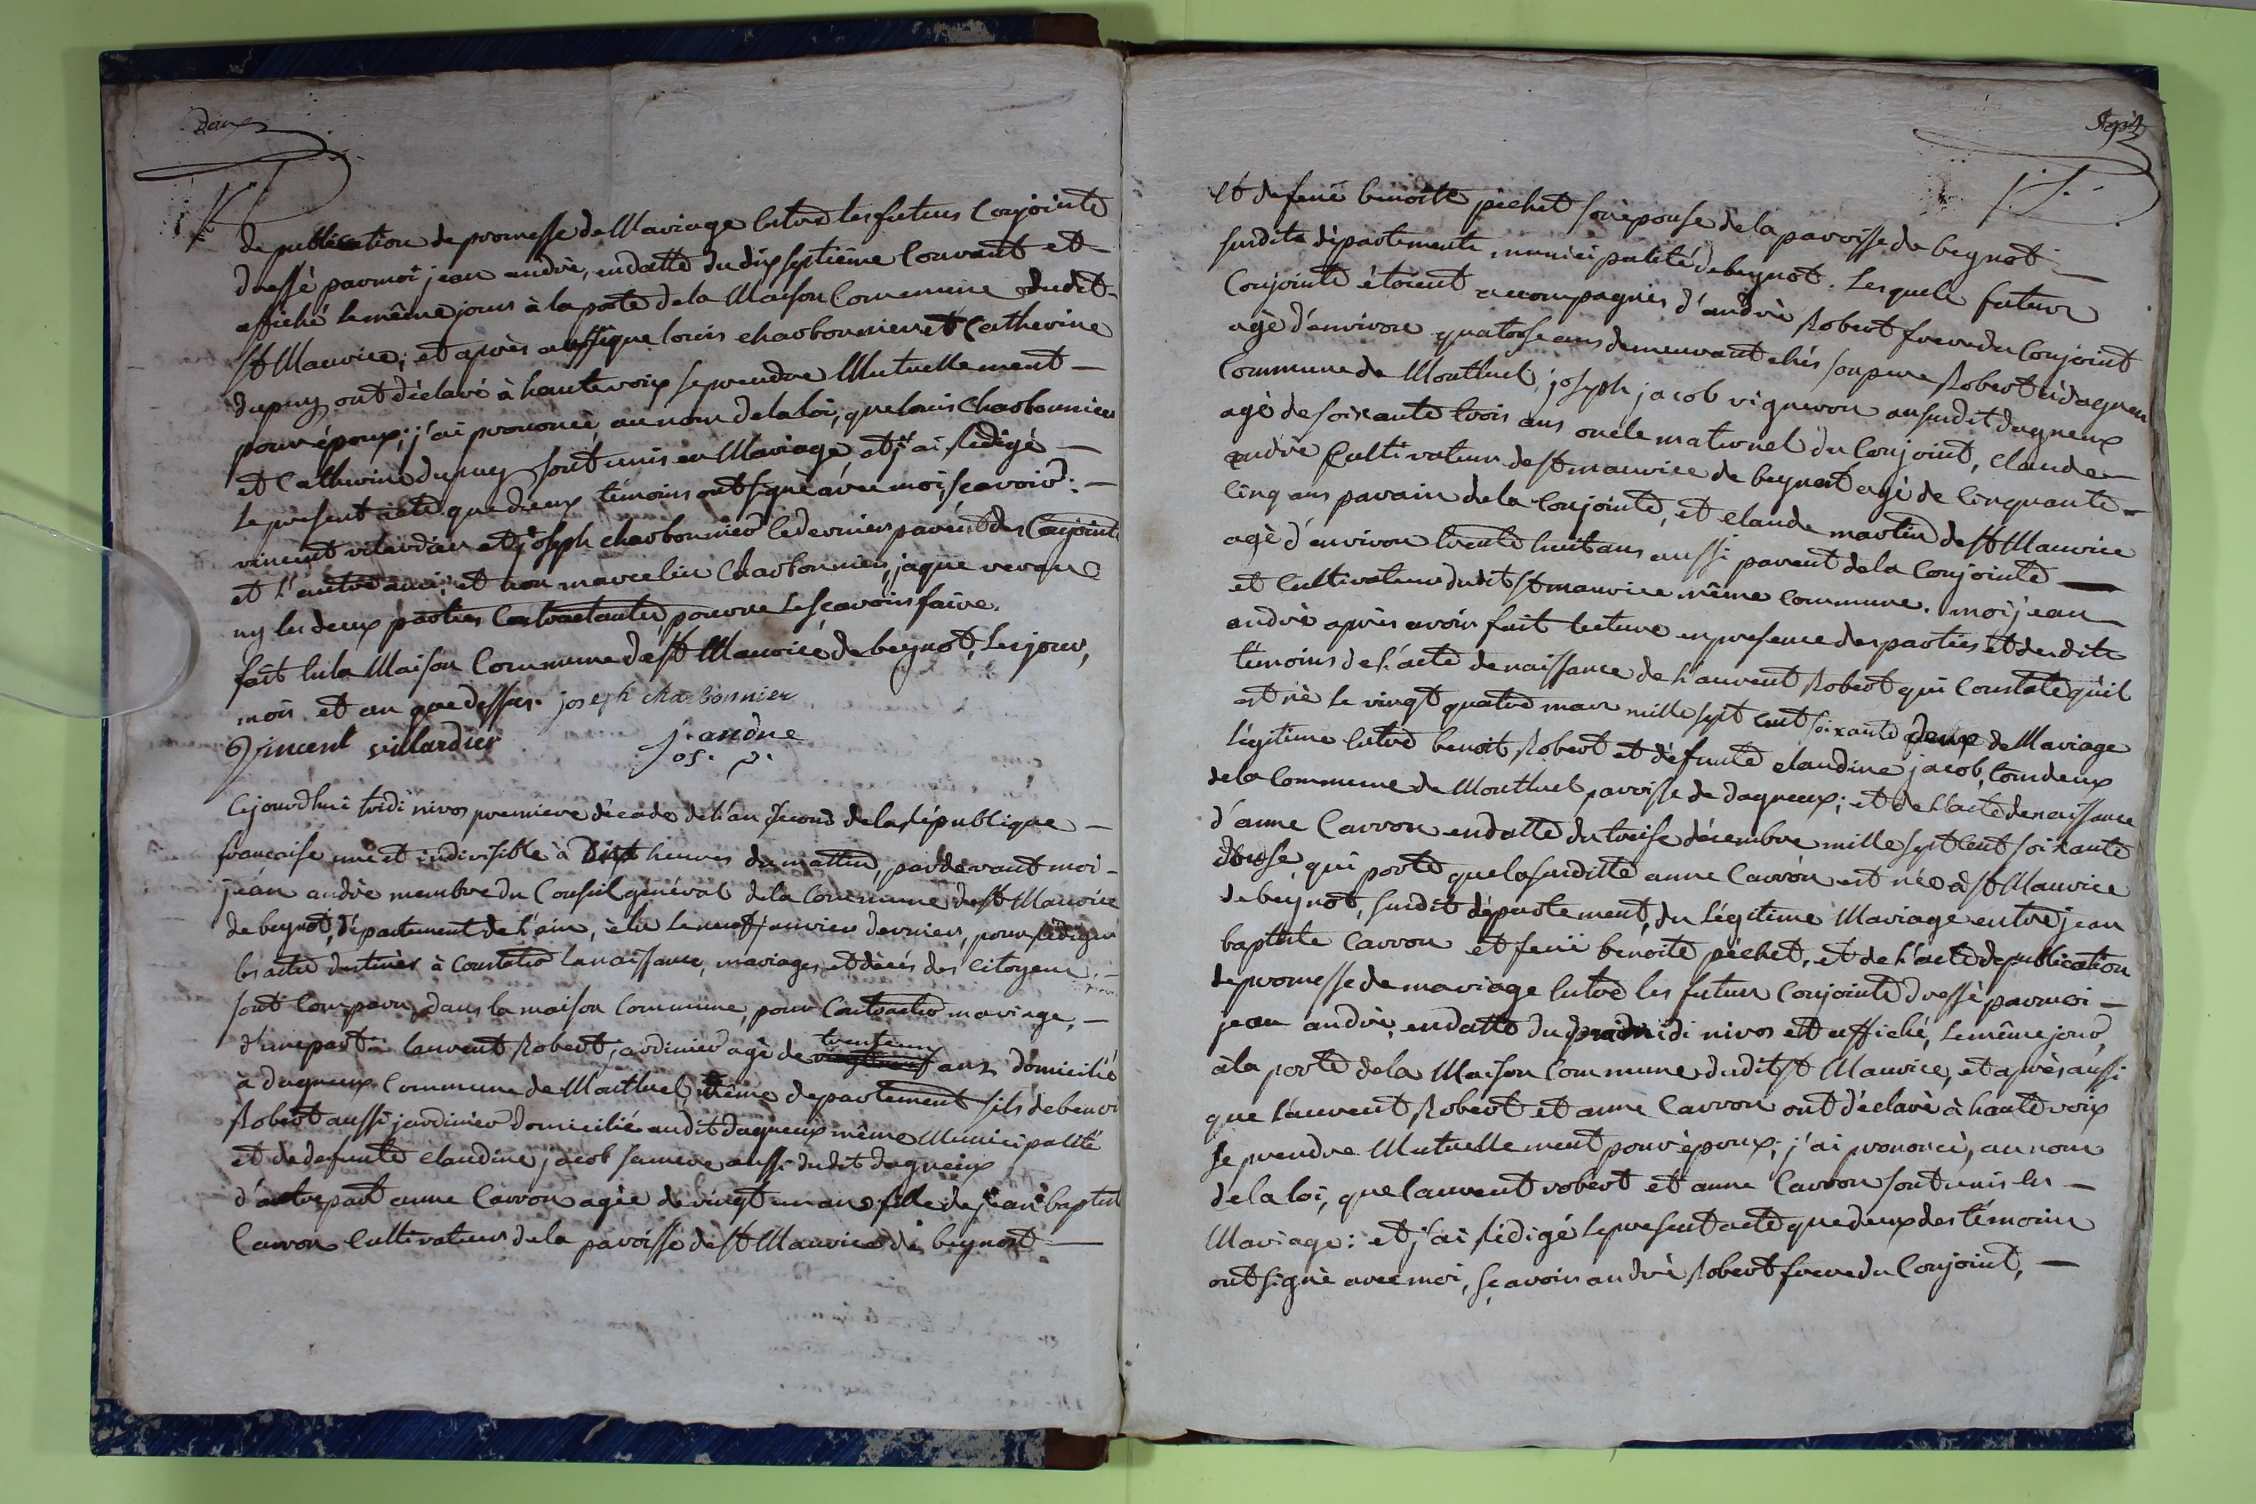 de publication de promesse de Mariage Entre les futurs Conjoints
dressé parmoi jean andré, en datte du dix septième Courant et
affiché le même jour à la porte de la Maison Commune dudit
St Maurice; et après aussi que louis charbonnier et Catherine
dupuy ont déclaré à haute voix se prendre Mutuellement —
pour époux; j'ai prononcé au nom de la loi, que louis Charbonnier
et Catherine dupuy sont unis en Mariage et j'ai Rédigé —
le present acte que deux témoins ont signé avec moi, scavoir: —
vincent vilardier et joseph charbonnier le dernier parent des Conjoints
et l'autre ami; et non marcelin Charbonnier, jaque
ny les deux parties Contractantes pour ne le scavoir faire.
fait En la Maison Commune de St Maurice de beynost, les jour,
mois et an que dessus. joseph charbonnier
Vincent villardier j. andré
Cejourdhui tridi nivos premiere décade de l'an second de la République —
francaise une et indivisible à Dix heures du mattin, pardevant moi -
jean andré membre du Conseil général de la Commune de St Maurice
de beynost, département de l'ain, élu le neuf janvier dernier, pour rédiger
les actes destinés à Constater la naissance, mariages et décés des Citoyens, —
sont Comparu dans la maison Commune, pour Contracter mariage, —
d'une part laurent Robert, jardinier agé de trente un ans domicilié
à dagneux Commune de Montluel, même departement fils de benoi
Robert aussi jardinier domicilié audit dagneux même Municipalité
et de defunte claudine jacob sa mere aussi dudit dagneux
d'autre part anne Carron agée de vingt un ans fille de jean baptiste
Carron Cultivateur de la paroisse de St Maurice de beynost —
Sept
et de feuë benoite péchet son épouse de la paroisse de beynost
susdite département, municipalité de beynost. Lesquels futurs
Conjoints étoient accompagnés d'andré Robert frere du Conjoint
agé d'environ quatorse ans demeurant chés son pere Robert à dagneux
Commune de Montluel, joseph jacob vigneron au susdit dagneux
agé de soixante trois ans oncle maternel du Conjoint, Claude —
andré Cultivateur de St maurice de beynost agé de Cinquante —
Cinq ans parain de la Conjointe, et claude martin de St Maurice
agé d'environ trente huit ans aussi parent de la Conjointe —
et Cultivateur dudit St maurice même Commune. moi jean
andré après avoir fait lecture en presence des parties et desdits
témoins de l'acte de naissance de laurent Robert qui Constate qu'il
est né le vingt quatre mars mille sept cent soixante deux de Mariage
légitime Entre benoit Robert et défunte claudine jacob, tous deux
de la Commune de Montluel paroisse de dagneux; et de l'acte de naissance
d'anne Carron en datte du treise décembre mille sept Cent soixante
douse, qui porte que la susditte anne Carron est née à St Maurice
de beynost, susdit département, du légitime Mariage entre jean
baptiste Carron et feuë benoite péchet, et de l'acte de publication
de promesse de mariage Entre les futurs Conjoints dressé parmoi —
jean andré, en datte du primidi nivos et affiché, le même jour,
à la porte de la Maison Commune dudit St Maurice, et après aussi
que laurent Robert et anne Carron ont déclaré à haute voix
se prendre Mutuellement pour époux; j'ai prononcé, au nom
de la loi, que laurent robert et anne Carron sont unis En —
Mariage: et j'ai Rédigé le present acte que deux des témoins
ont signé avec moi, scavoir andré Robert frere du Conjoint, —